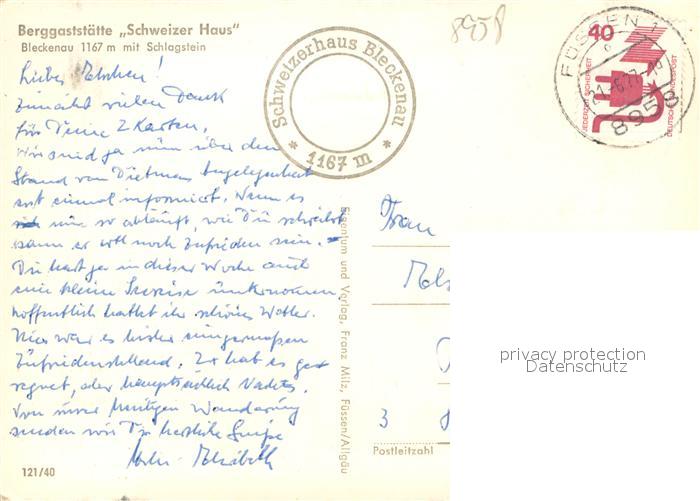 Berggaststätte „Schweizer Haus"
Bleckenau 1167 m mit Schlagstein
Liebes
Zunächst vielen Dank
für Deine 2 Karten,
Wir sind ja nun über den
Stand von Dietmars Angelegenheit
erst einmal informiert. Wenn es
nun so abläuft, wie Du schreibst
kann er wohl noch zufrieden sein. -
Du hast ja in dieser Woche auch
eine kleine unternommen,
hoffentlich hattet ihr schönes Wetter.
Hier war es bisher einigermaßen
Zufriedenstellend. 2x hat es ge=
regnet, aber hauptsächlich Nachts.
Von unserer heutigen Wanderung
senden wir Dir herzliche Grüße
121/40
8958
Schweizerhaus Bleckenau
* 1167 m *
Eigentum und Verlag, Franz Milz, Füssen/Allgäu
FÜSSEN 1
8958
40
JEDERZEIT SICHERHEIT
DEUTSCHE BUNDESPOST
Frau
3
Postleitzahl
privacy protection
Datenschutz